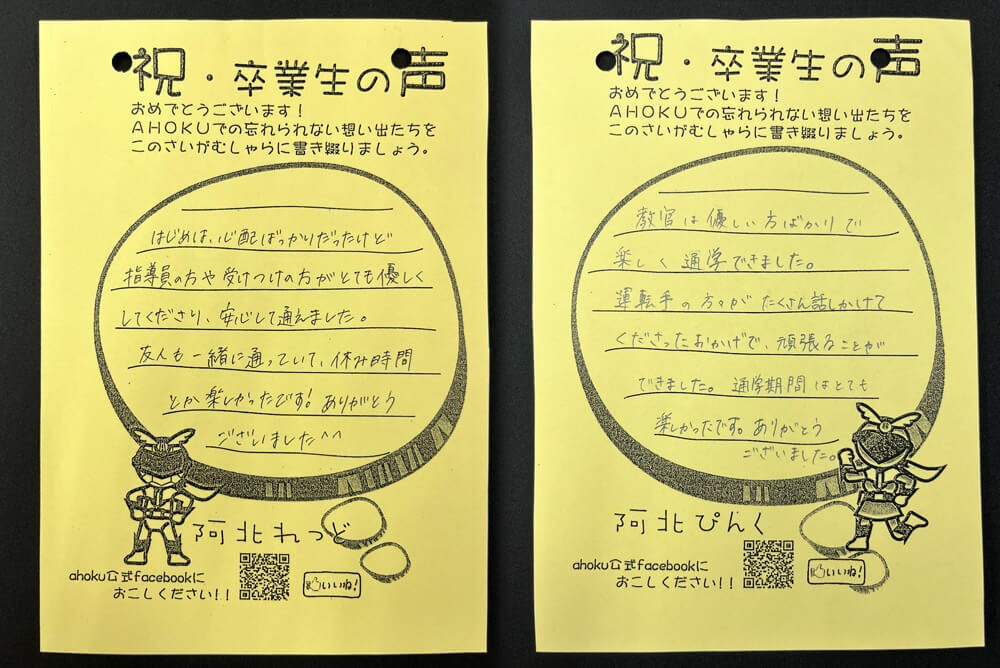 祝・卒業生の声
おめでとうございます！
AHOKUでの忘れられない想い出たちを
このさいがむしゃらに書き綴りましょう。
はじめは、心配ばっかりだったけど
指導員の方や受けつけの方がとても優しく
してくださり、安心して通えました。
友人も一緒に通っていて、休み時間
とか楽しかったです！ありがとう
ございました^^
阿北れっど
ahoku公式facebookに
おこしください！！
いいね！
祝・卒業生の声
おめでとうございます！
AHOKUでの忘れられない想い出たちを
このさいがむしゃらに書き綴りましょう。
教官は優しい方ばかりで
楽しく通学できました。
運転手の方々がたくさん話しかけて
くださったおかげで、頑張ることが
できました。通学期間はとても
楽しかったです。ありがとう
ございました。
阿北ぴんく
ahoku公式facebookに
おこしください！！
いいね！